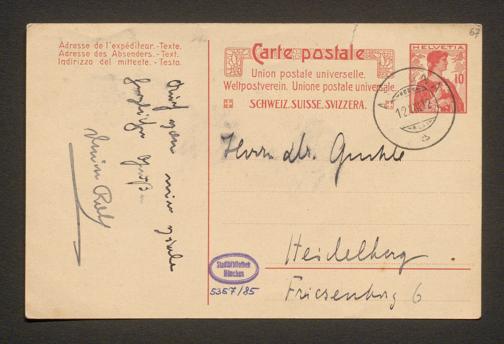 Adresse de l'expéditeur.-Texte.
Adresse des Absenders.-Text.
Indirizzo del mittente.-Testo.
67
Carte postale
Union postale universelle.
Weltpostverein. Unione postale universale.
SCHWEIZ. SUISSE. SVIZZERA.
HELVETIA
10
Herrn Dr.
Heidelberg.
Friesenberg 6
Stadtbibliothek
München
5357/85
Auch von mir viele
herzliche Grüße